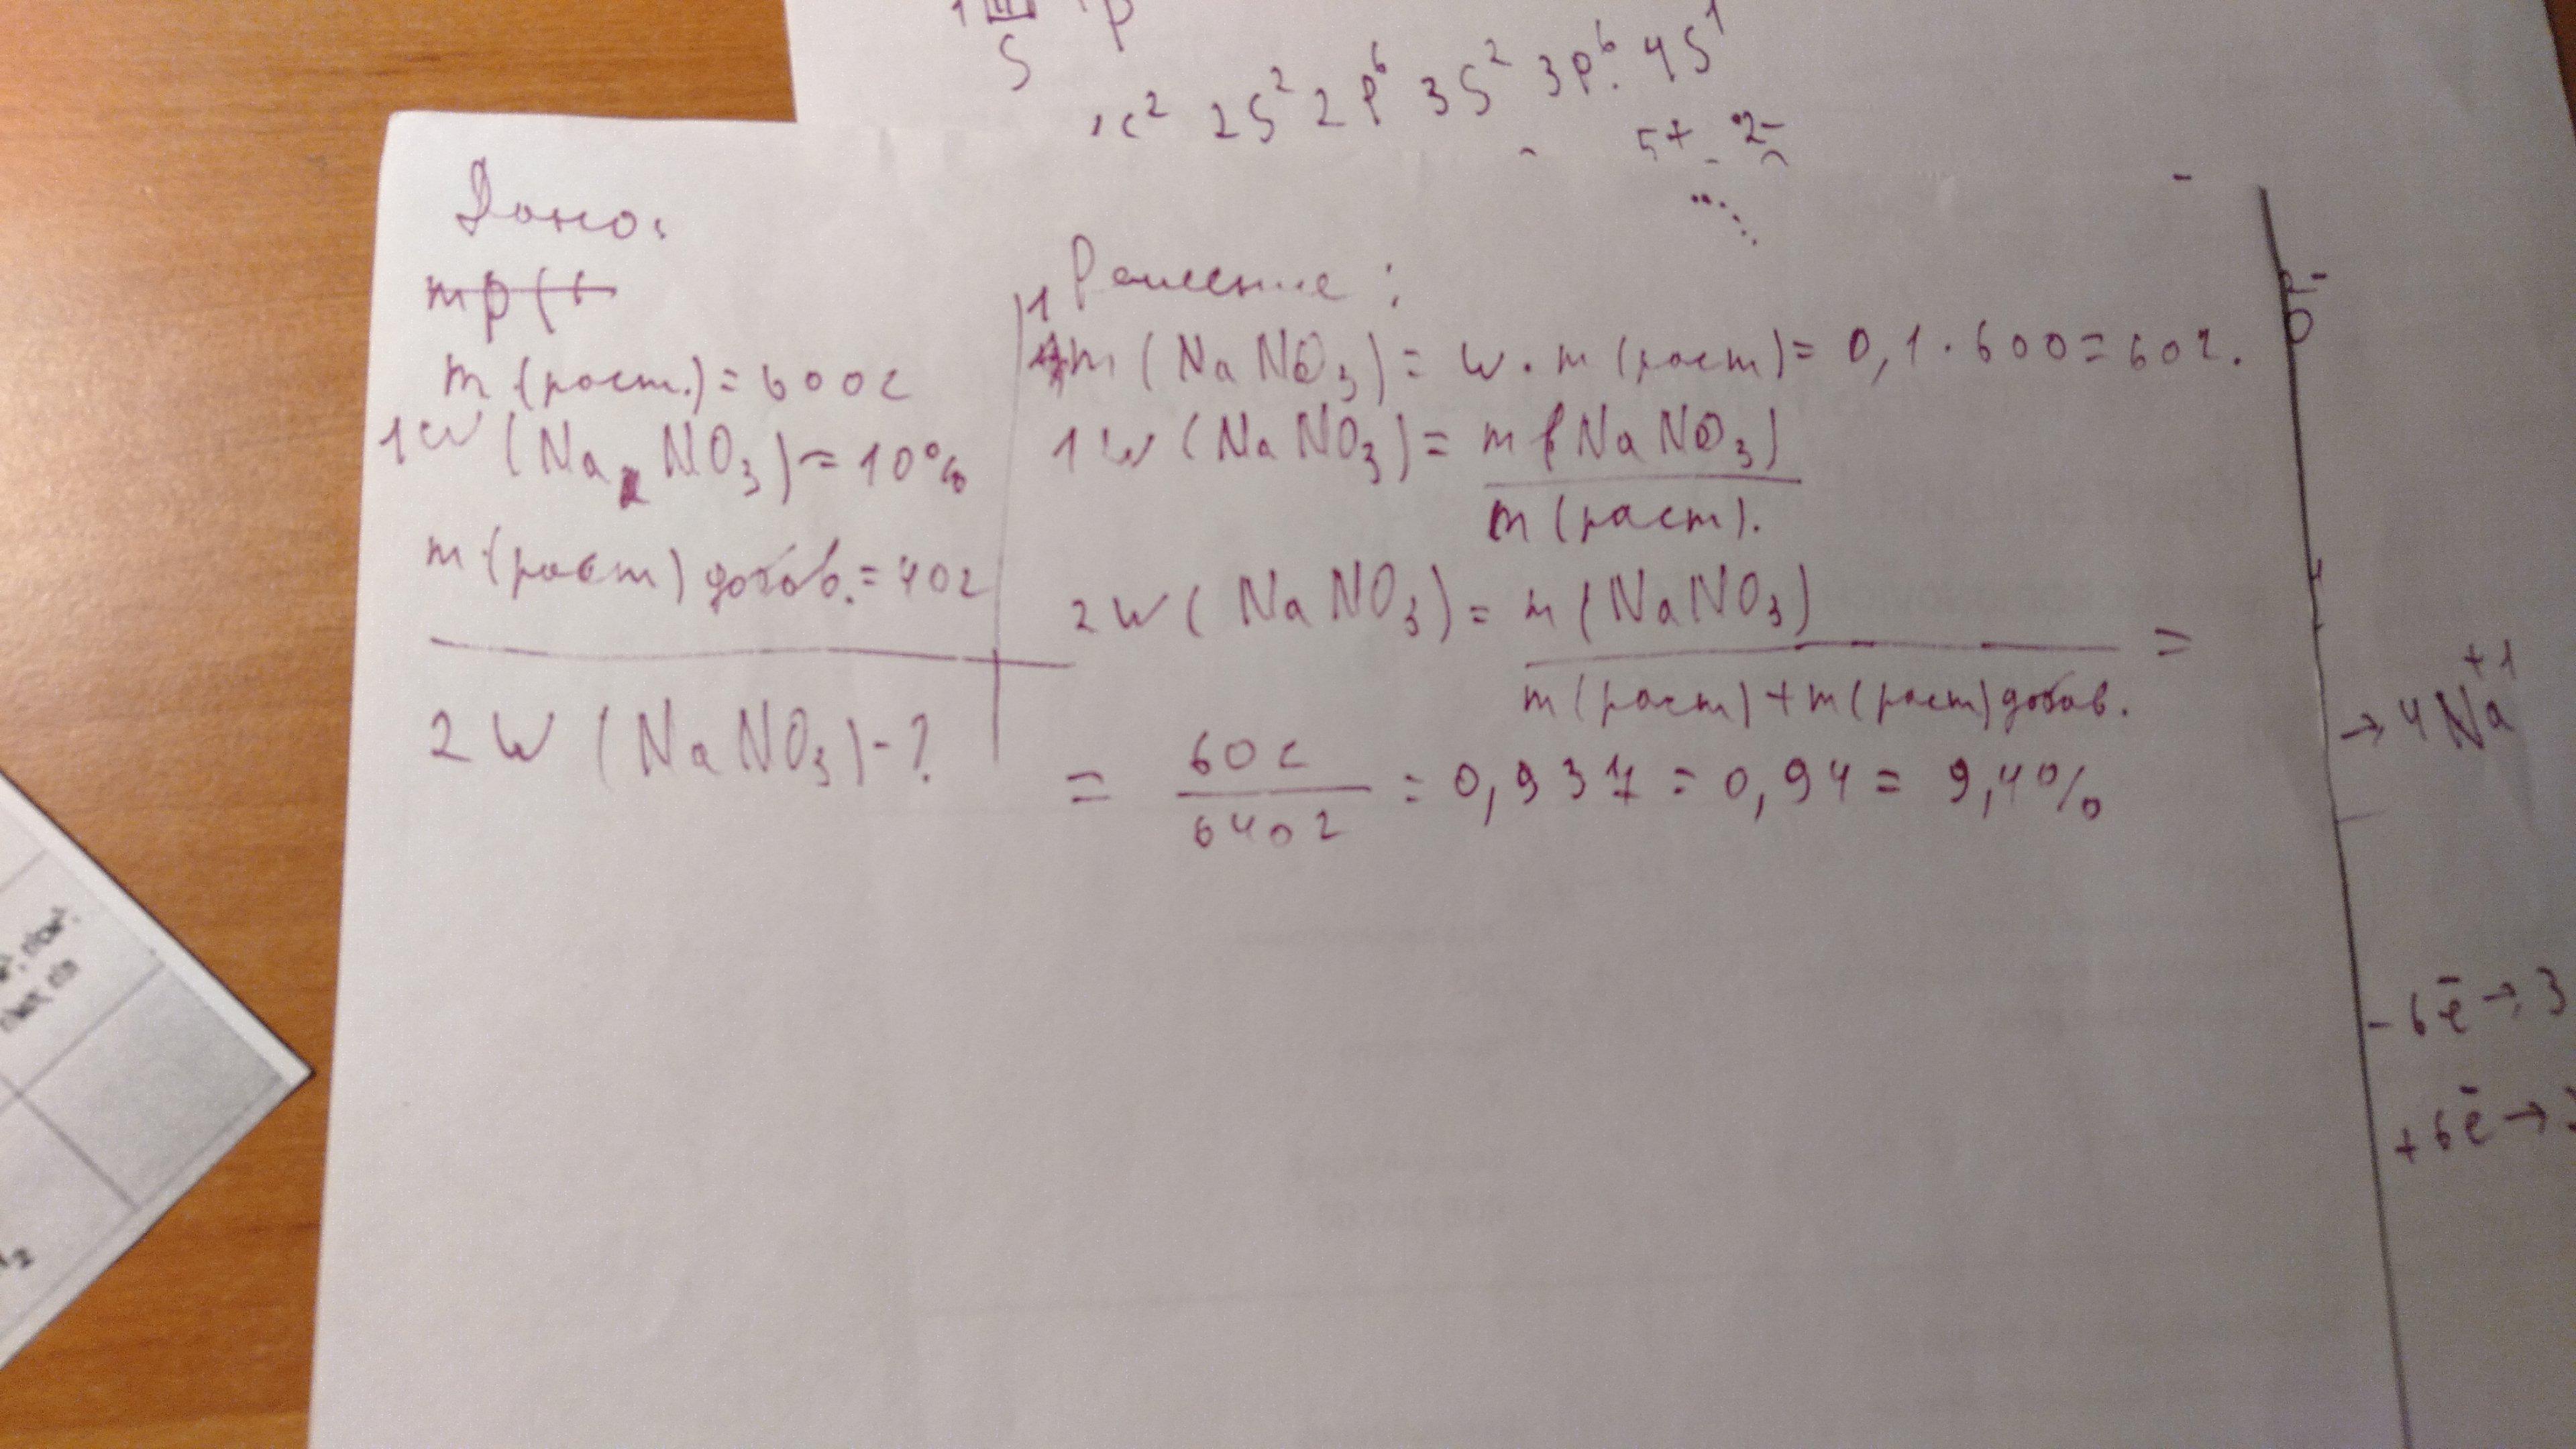 S
2S² 2P⁶ 3S² 3P⁶ 4S¹
5+ 2-
Дано:
mр(
m (раст.) = 600г
1 W (Na NO₃) = 10%
m (раст) добав. = 40г
2 W (NaNO₃) - ?
Решение:
1 m (NaNO₃) = w · m (раст) = 0,1 · 600 = 60г.
1 W (NaNO₃) = m (NaNO₃)
m (раст).
2 W (NaNO₃) = m (NaNO₃) =
m (раст) + m (раст) добав.
= 60г = 0,937 = 0,94 = 9,4%
640г
→ 4Na⁺¹
- 6ē → 3
+ 6ē →